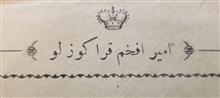 امیر افخم قراکوزلو